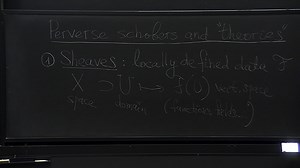 Perverse schobers and "theories"
① Sheaves: locally defined data F
X ⊃ U ↦ F(U) vect. space
space domain (functions, fields, )